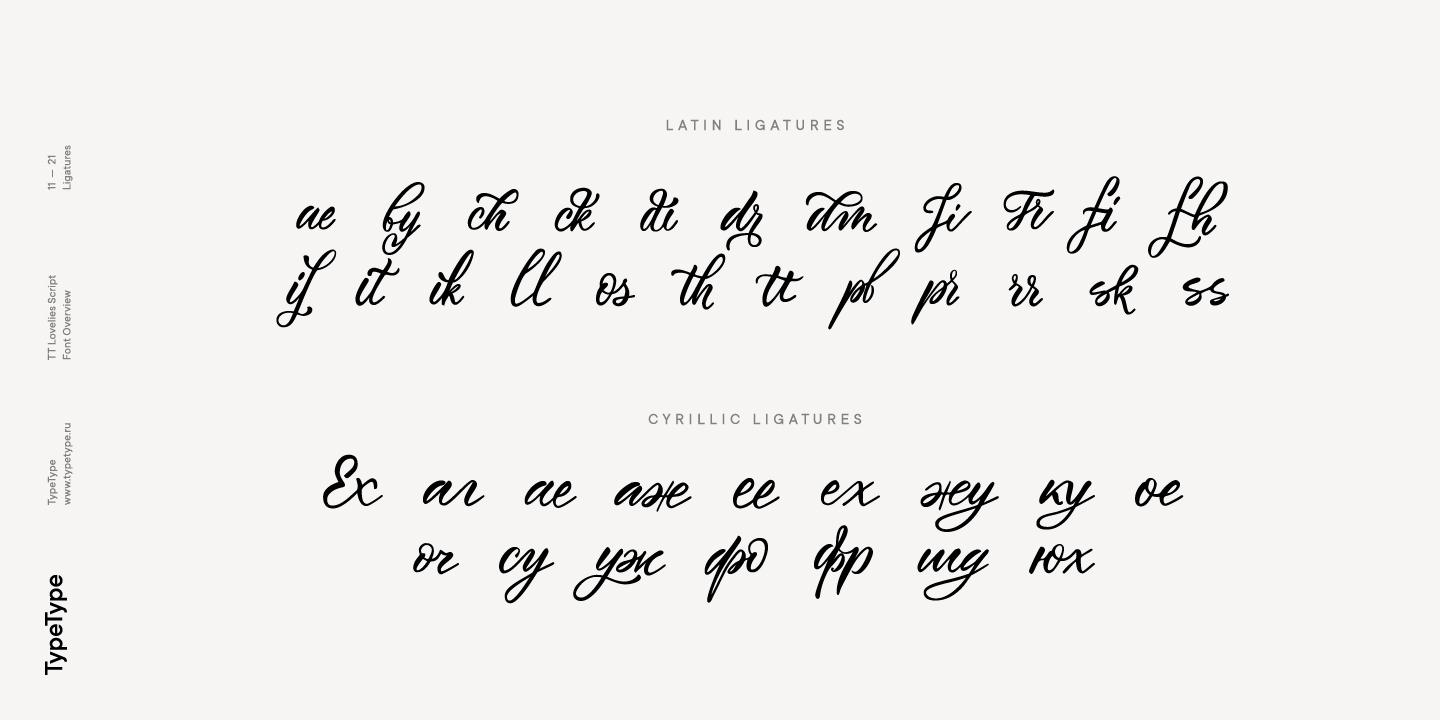 LATIN LIGATURES
ae by ch ck di dr dm Ji Fr fi fh
if it ik ll os th tt pb pr rr sk ss
CYRILLIC LIGATURES
Ех аг ае аже ее ех жеу ку ое
ог су уж фо фр шд юх
11 — 21
Ligatures
TT Lovelies Script
Font Overview
TypeType
www.typetype.ru
TypeType